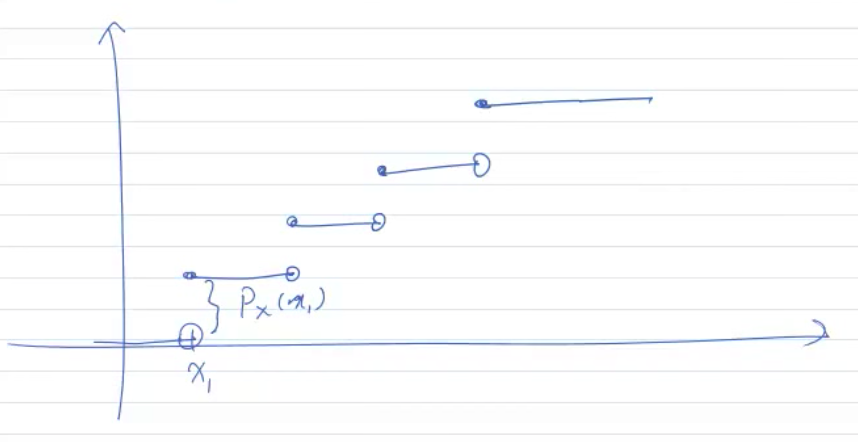 } Pₓ(x₁)
x₁